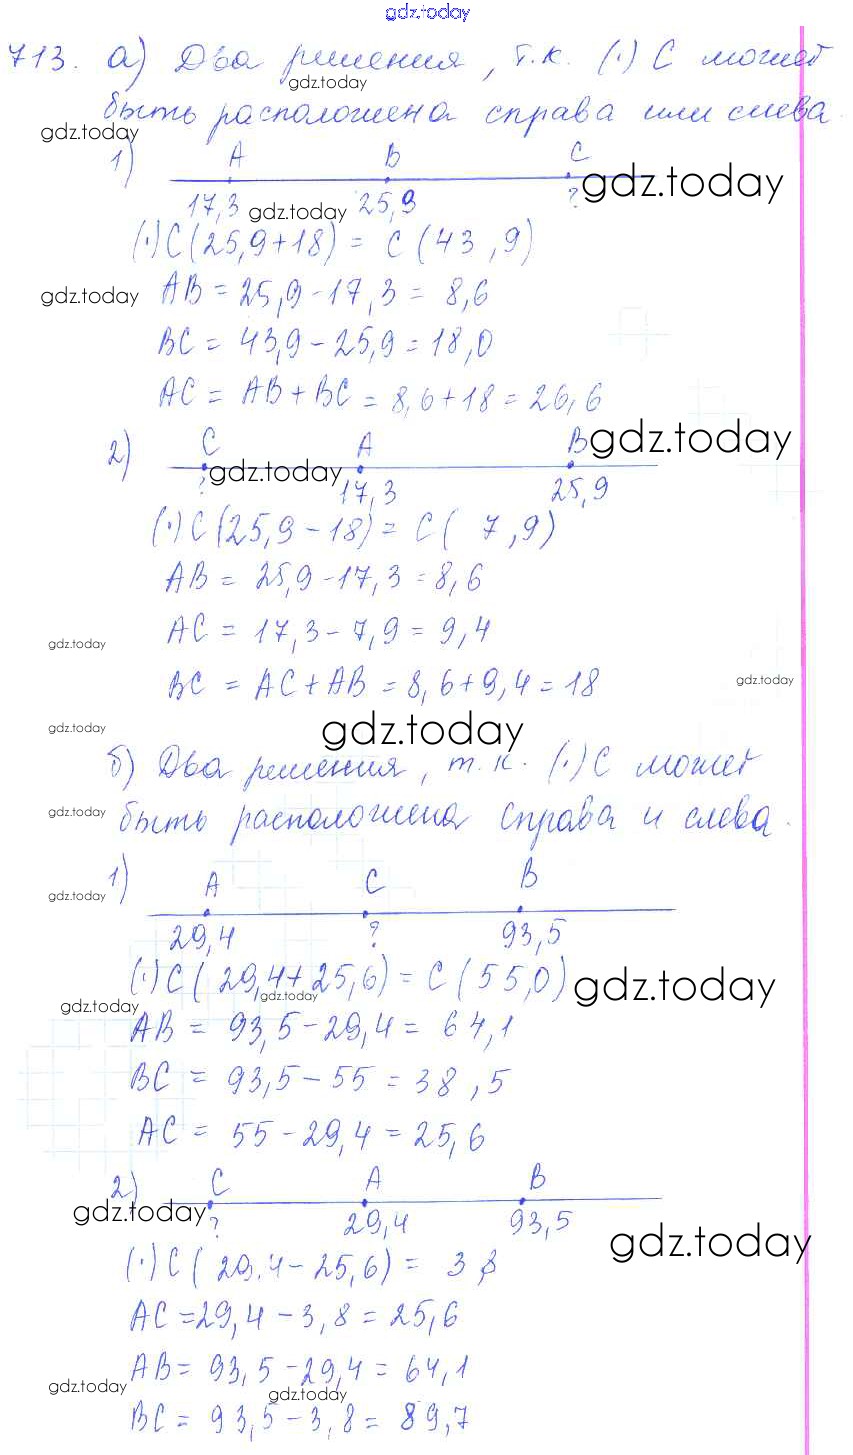 gdz.today
713. а) Два решения, т.к. (·) С может
gdz.today
быть расположена справа или слева.
gdz.today
1) A B C
17,3 gdz.today 25,9 ? gdz.today
(·)C(25,9+18) = C(43,9)
gdz.today AB = 25,9-17,3 = 8,6
BC = 43,9-25,9=18,0
AC = AB+BC = 8,6+18=26,6
2) C A B gdz.today
? gdz.today 17,3 25,9
(·)C(25,9-18)= C( 7,9)
AB = 25,9-17,3=8,6
AC = 17,3-7,9=9,4
gdz.today
BC = AC+AB=8,6+9,4=18
gdz.today
gdz.today gdz.today
б) Два решения, т.к. (·) С может
быть расположена справа и слева.
gdz.today
1) A C B
gdz.today
29,4 ? 93,5
(·)C( 29,4+25,6)=C(55,0) gdz.today
gdz.today gdz.today
AB = 93,5-29,4= 64,1
BC = 93,5-55=38,5
AC = 55-29,4=25,6
2) C A B
gdz.today ? 29,4 93,5
gdz.today
(·)C( 29,4-25,6)= 3,8
AC=29,4-3,8=25,6
AB= 93,5-29,4=64,1
gdz.today gdz.today
BC= 93,5-3,8= 89,7